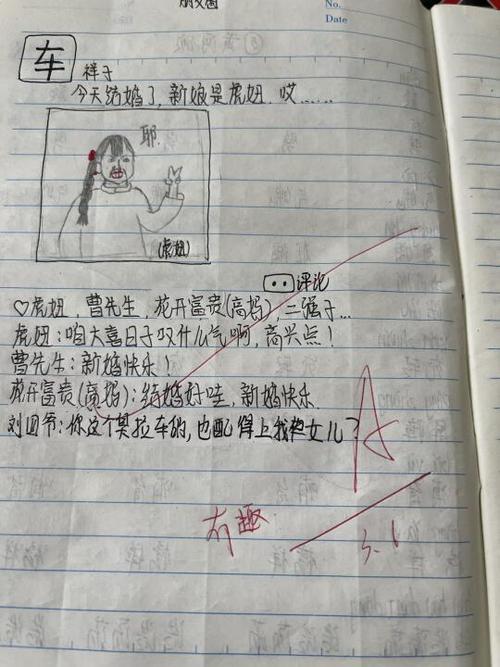 朋友圈
No.
Date
车
祥子
今天结婚了，新娘是虎妞．哎……
耶．
(虎妞)
评论
♡虎妞，曹先生，花开富贵(高妈)，二强子…
虎妞：咱大喜日子叹什么气啊，高兴点！
曹先生：新婚快乐！
花开富贵(高妈)：结婚好哇，新婚快乐
刘四爷：你这个臭拉车的，也配得上我女儿？
A
有趣
3.1